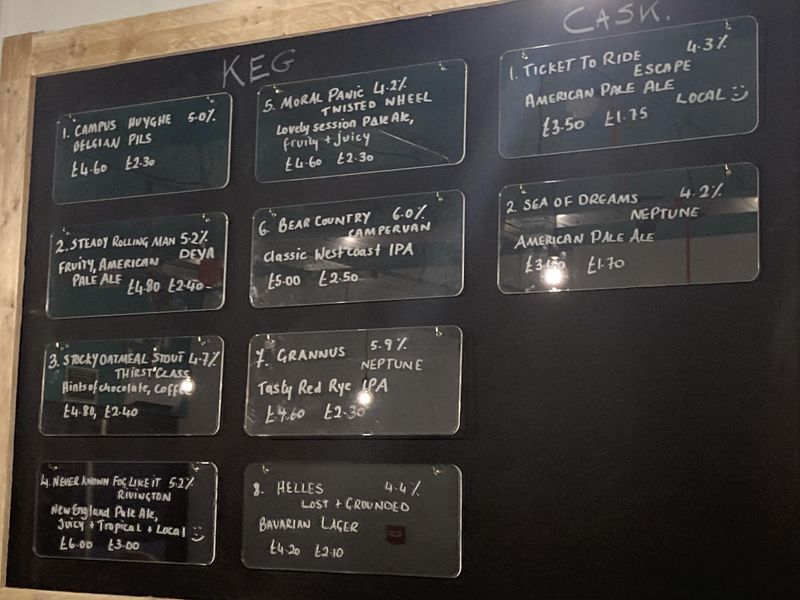 KEG
1. CAMPUS HUYGHE 5.0%
BELGIAN PILS
£4.60 £2.30
2. STEADY ROLLING MAN 5.2%
DEYA
FRUITY, AMERICAN
PALE ALE £4.80 £2.40
3. STOCKY OATMEAL STOUT 4.7%
THIRST CLASS
Hints of chocolate, Coffee
£4.80, £2.40
4. NEVER KNOWN FOG LIKE IT 5.2%
RIVINGTON
New England Pale Ale,
Juicy + Tropical + Local
£6.00 £3.00
5. MORAL PANIC 4.2%
TWISTED WHEEL
Lovely session Pale Ale,
fruity + juicy
£4.60 £2.30
6. BEAR COUNTRY 6.0%
CAMPERVAN
Classic West Coast IPA
£5.00 £2.50
7. GRANNUS 5.9%
NEPTUNE
Tasty Red Rye IPA
£4.60 £2.30
8. HELLES 4.4%
LOST + GROUNDED
BAVARIAN LAGER
£4.20 £2.10
CASK.
1. TICKET TO RIDE 4.3%
ESCAPE
AMERICAN PALE ALE
LOCAL
£3.50 £1.75
2. SEA OF DREAMS 4.2%
NEPTUNE
AMERICAN PALE ALE
£1.70